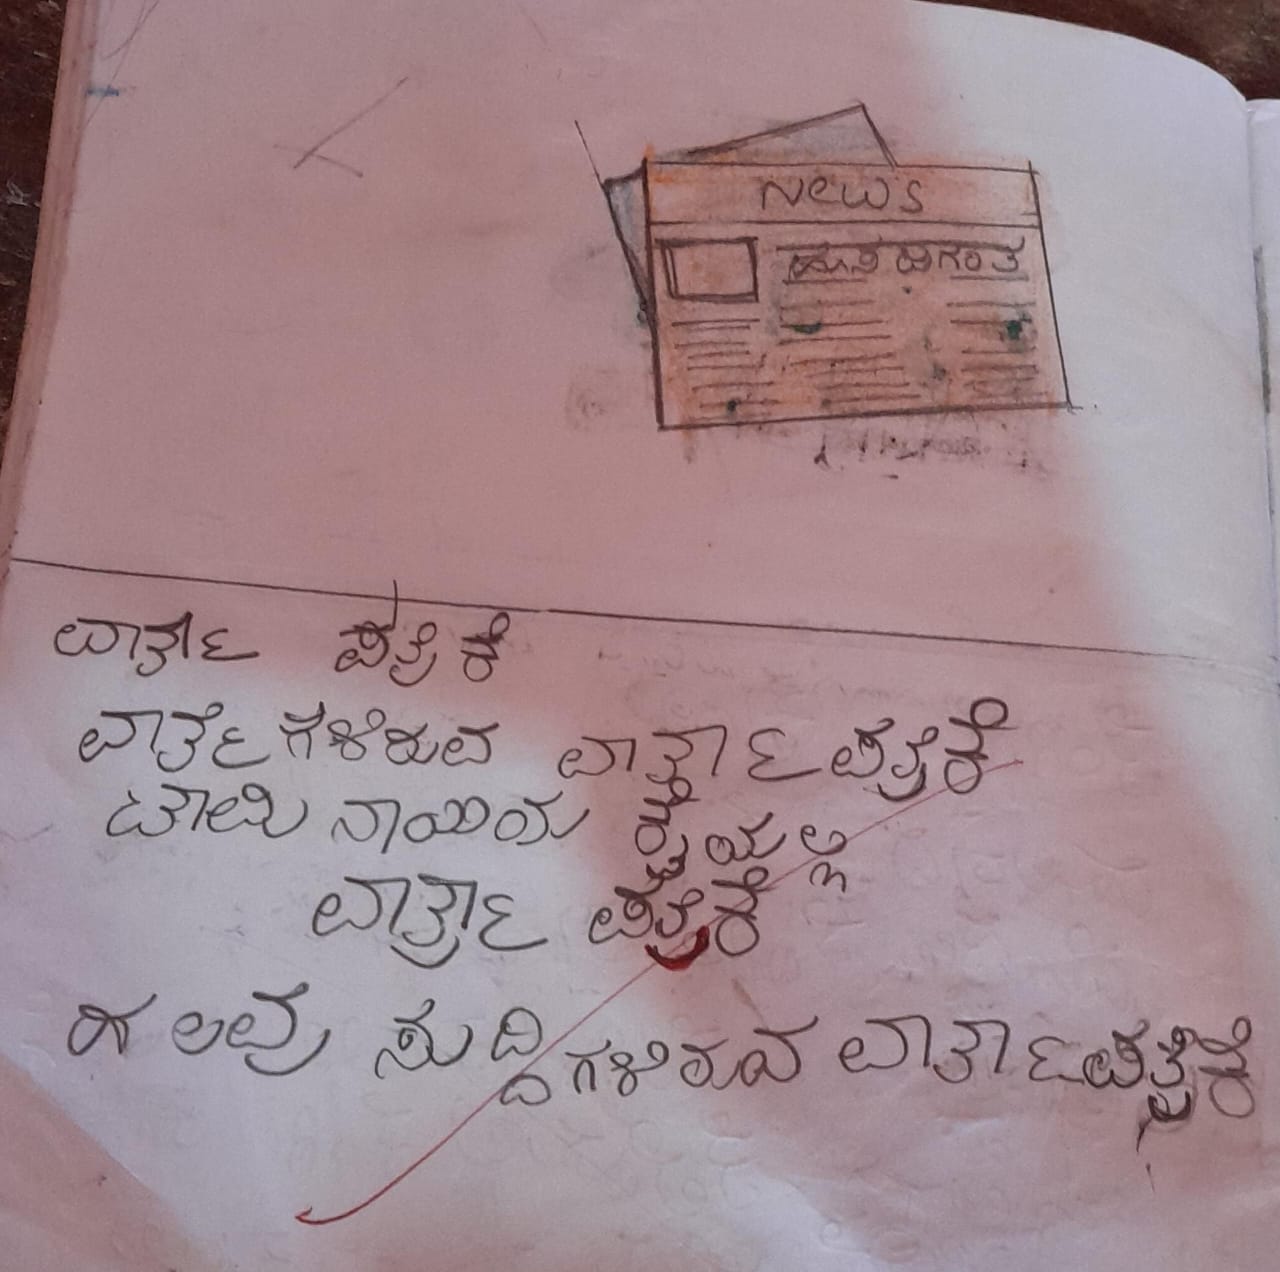 News
ಹೊಸ ದಿಗಂತ
ವಾರ್ತಾ ಪತ್ರಿಕೆ
ವಾರ್ತೆಗಳಿರುವ ವಾರ್ತಾಪತ್ರಿಕೆ
ಟಾಮಿ ನಾಯಿಯ
ವಾರ್ತಾ ಪತ್ರಿಕೆ
ಹಲವು ಸುದ್ದಿಗಳಿರುವ ವಾರ್ತಾಪತ್ರಿಕೆ